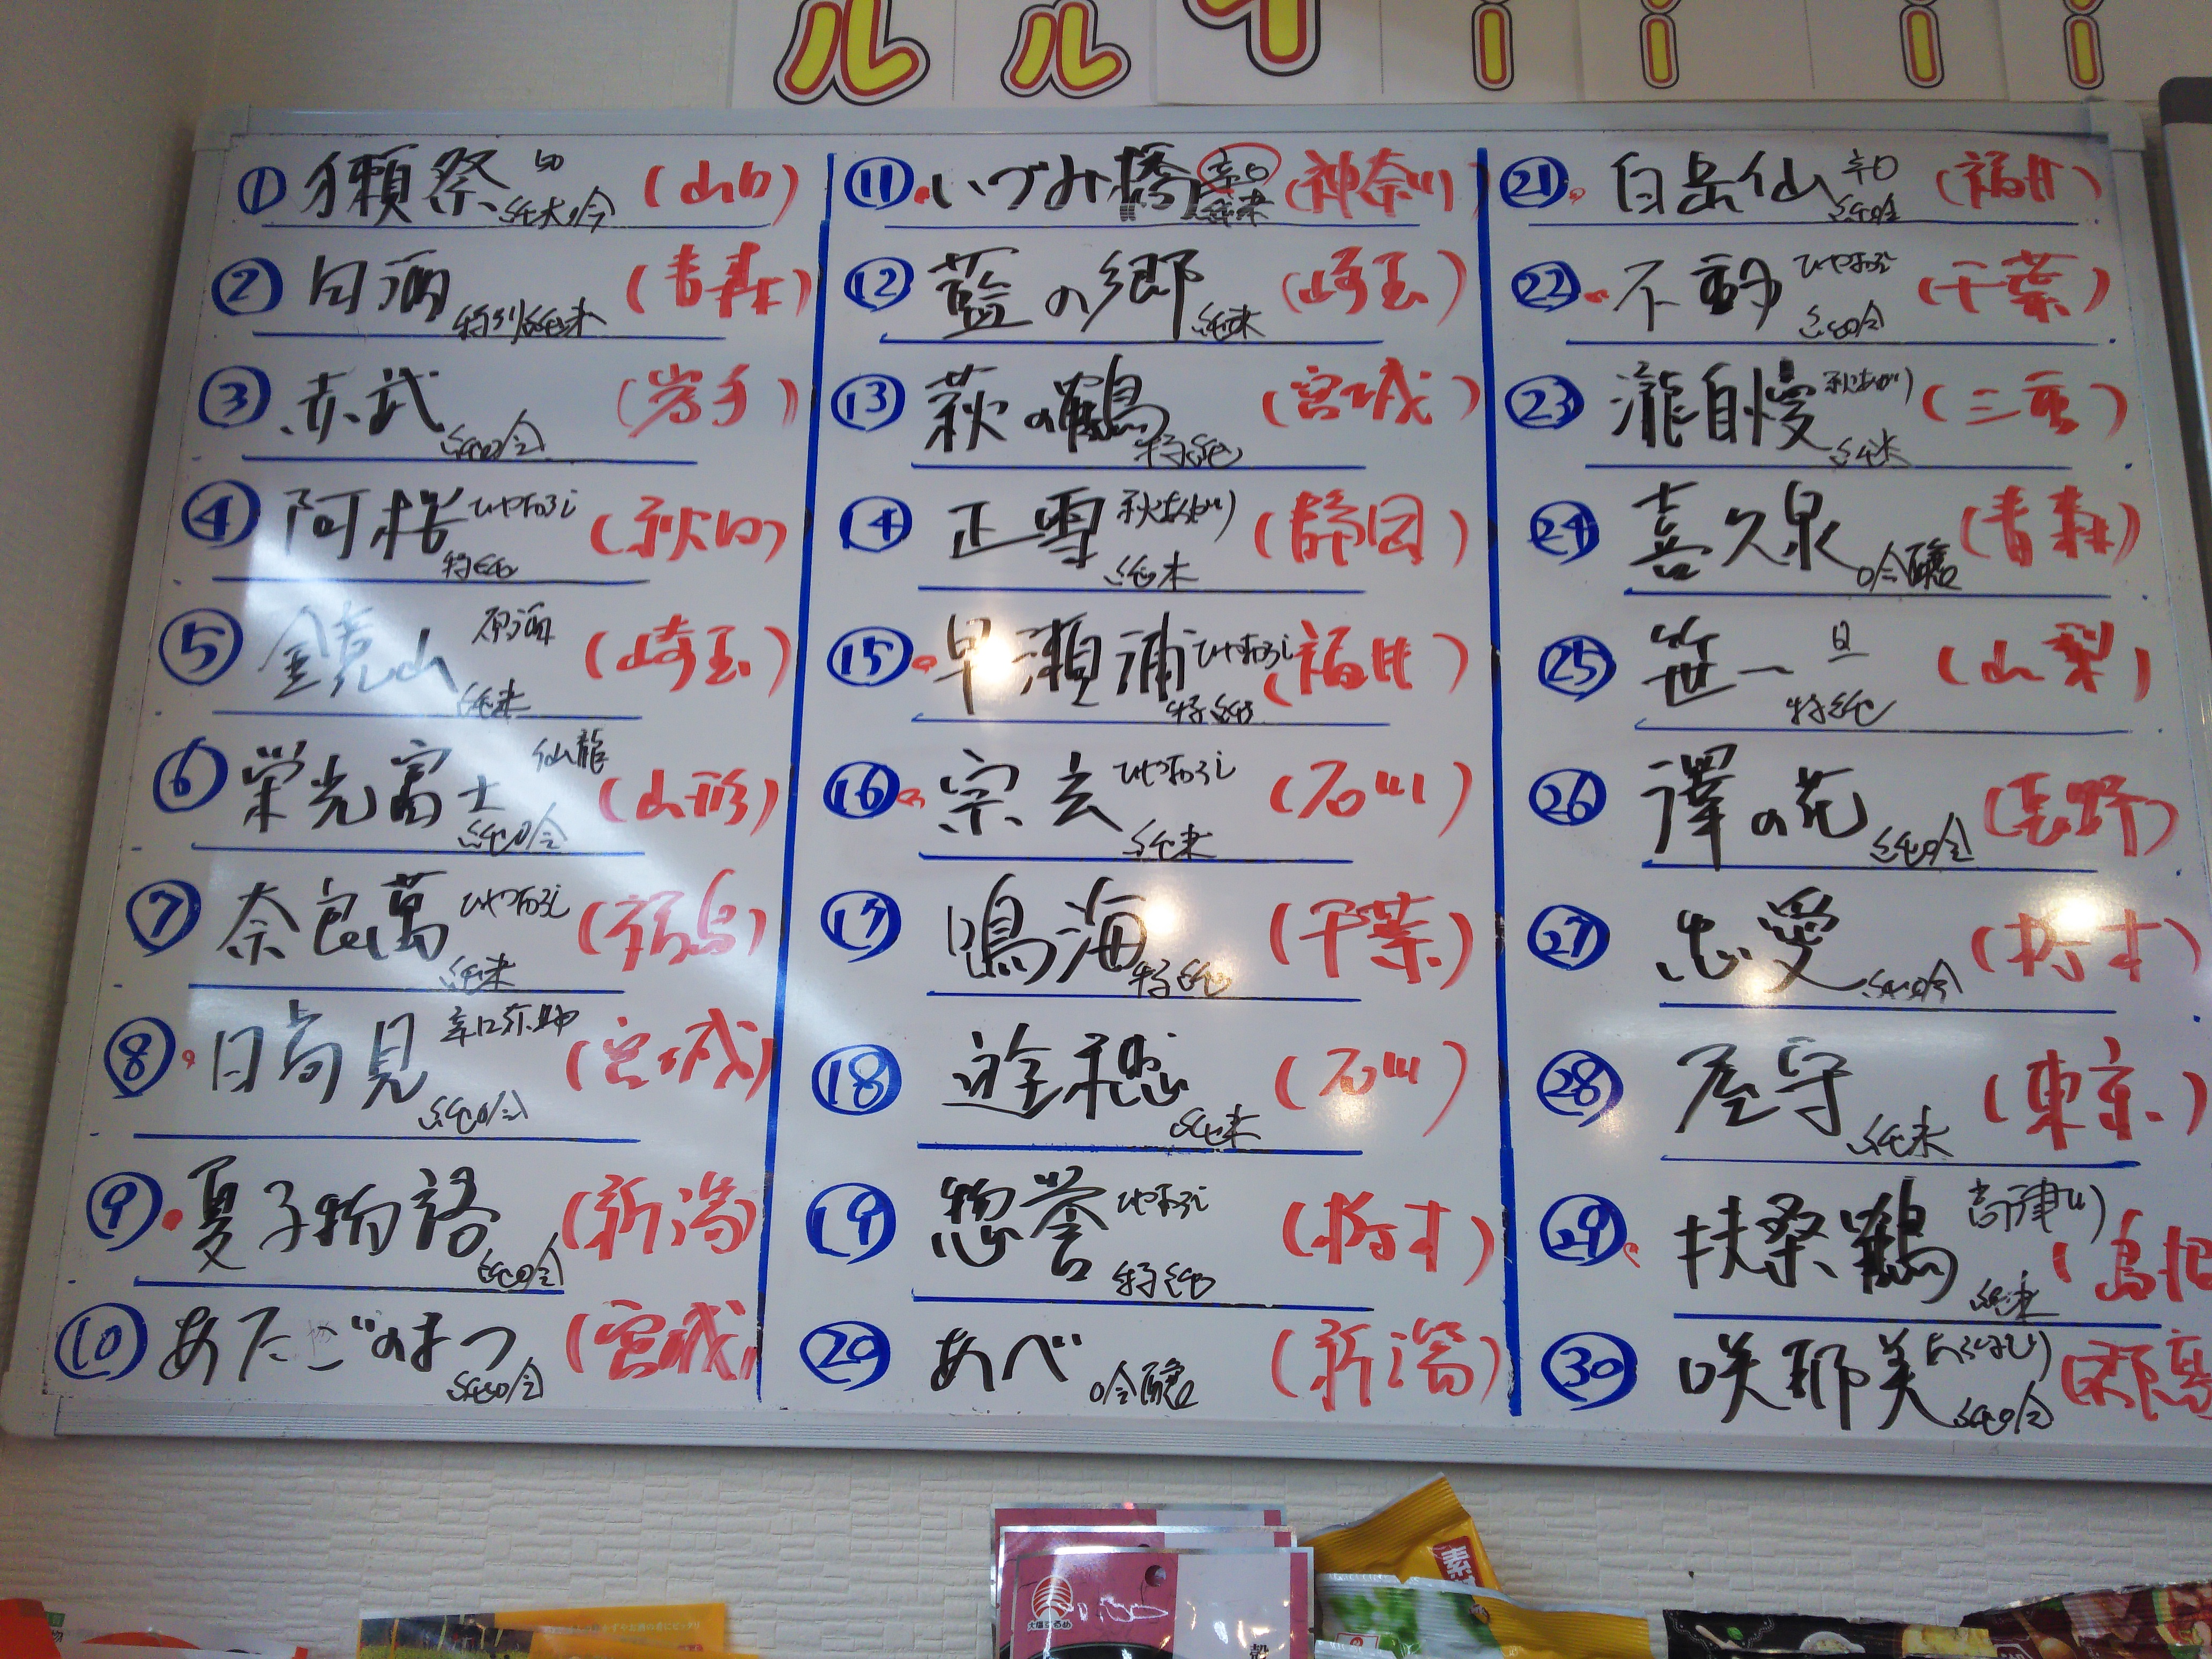 ルルイーーーー
① 獺祭 50 純大吟 (山口)
② 田酒 特別純米 (青森)
③ 赤武 純吟 (岩手)
④ 阿桜 ひやおろし 特純 (秋田)
⑤ 金鏡山 原酒 純米 (崎玉)
⑥ 栄光冨士 仙龍 純吟 (山形)
⑦ 奈良萬 ひやおろし 純米 (福島)
⑧ 日高見 辛口弥助 純吟 (宮城)
⑨ 夏子物語 純吟 (新潟)
⑩ あたごのまつ 純吟 (宮城)
⑪ いづみ橋 辛口 純米 (神奈川)
⑫ 藍の郷 純米 (崎玉)
⑬ 萩の鶴 特純 (宮城)
⑭ 正雪 秋あがり 純米 (静岡)
⑮ 早瀬浦 ひやおろし 特純 (福井)
⑯ 宗玄 ひやおろし 純米 (石川)
⑰ 鳴海 特純 (千葉)
⑱ 遊穂 純米 (石川)
⑲ 惣誉 ひやおろし 特純 (栃木)
⑳ あべ 吟醸 (新潟)
㉑ 白岳仙 辛口 純吟 (福井)
㉒ 不動 ひやおろし 純吟 (千葉)
㉓ 瀧自慢 秋あがり 純米 (三重)
㉔ 喜久泉 吟醸 (青森)
㉕ 笹一 旦 特純 (山梨)
㉖ 澤の花 純吟 (長野)
㉗ 忠愛 純吟 (栃木)
㉘ 屋守 純米 (東京)
㉙ 扶桑鶴 高津川 純米 (島根
㉚ 咲耶美 純吟 (群馬